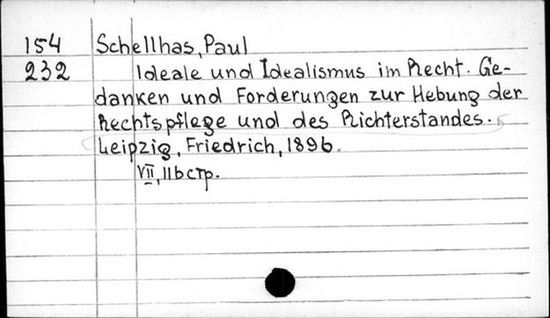 154 Schellhas, Paul
232 Ideale und Idealismus im Recht. Ge-
danken und Forderungen zur Hebung der
Rechtspflege und des Richterstandes.
Leipzig, Friedrich, 1896.
VII, 116 стр.